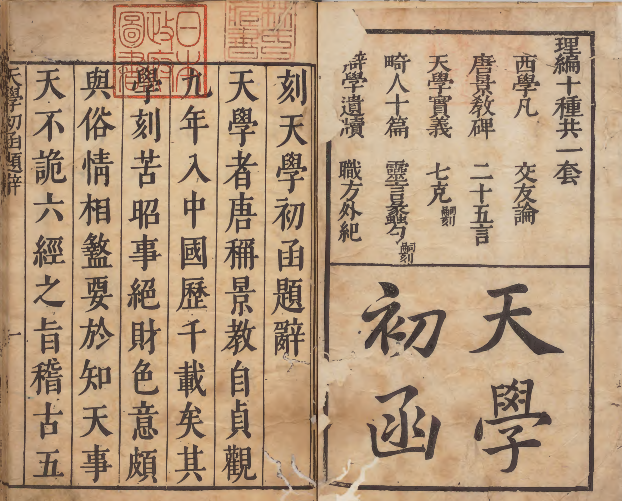 理編十種共一套
西學凡 交友論
唐景教碑 二十五言
天學實義 七克嗣刻
畸人十篇 靈言蠡勺嗣刻
辯學遺牘 職方外紀
天學
初函
刻天學初函題辭
天學者唐稱景教自貞觀
九年入中國歷千載矣其
學刻苦昭事絕財色意頗
與俗情相盭要於知天事
天不詭六經之旨稽古五
天學初函題辭 一
日本政府圖書